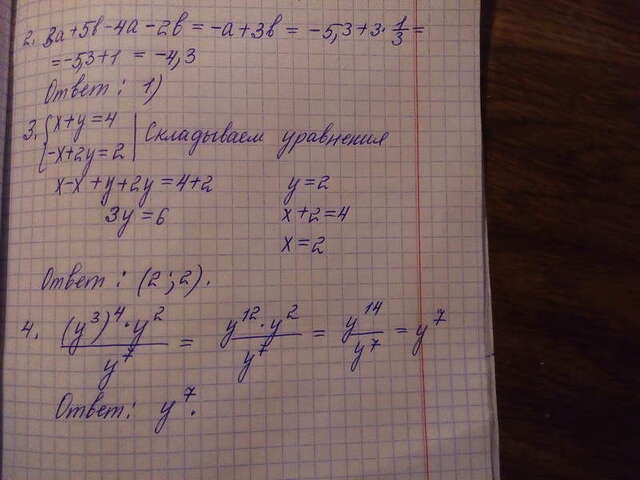 2. 3a+5b-4a-2b = -a+3b = -5,3+3·1/3=
=-5,3+1 = -4,3
Ответ: 1)
3. {x+y=4 | Складываем уравнения
{-x+2y=2 |
x-x+y+2y=4+2 y=2
3y=6 x+2=4
x=2
Ответ: (2;2).
4. (y³)⁴·y²/y⁷ = y¹²·y²/y⁷ = y¹⁴/y⁷ = y⁷
Ответ: y⁷.